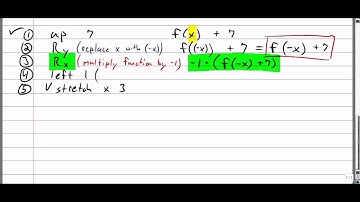 ✓ ① up 7 f(x) + 7
② Ry (replace x with (-x)) f((-x)) + 7 = f(-x) + 7
③ Rx (multiply function by -1) -1·(f(-x)+7)
④ left 1 (
⑤ V stretch x 3